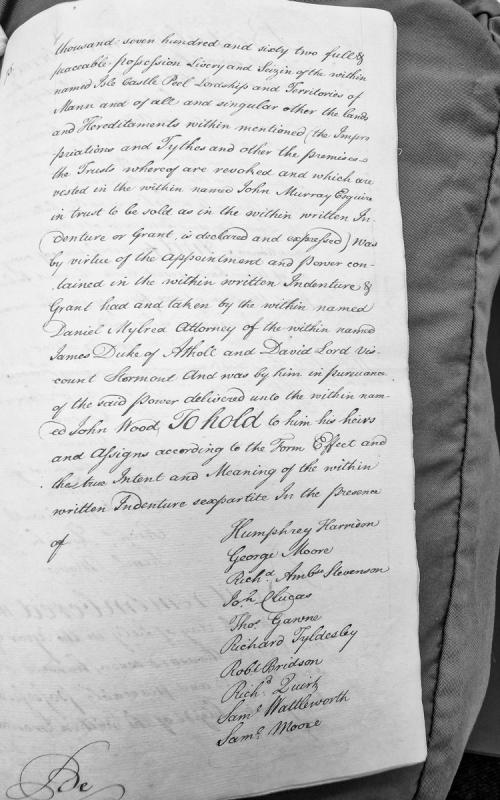 thousand seven hundred and sixty two full &
peaceable possession Livery and Seizin of the within
named Isle Castle Peel Lordship and Territories of
Mann and of all and singular other the lands
and Hereditaments within mentioned (the Impro
priations and Tythes and other the premises
the Trusts whereof are revoked and which are
vested in the within named John Murray Esquire
in trust to be sold as in the within written In-
denture or Grant, is declared and expressed) Was
by virtue of the Appointment and Power con-
tained in the within written Indenture &
Grant had and taken by the within named
Daniel Mylrea Attorney of the within named
James Duke of Atholl and David Lord Vis-
count Stormont And was by him in pursuance
of the said Power delivered unto the within nam-
ed John Wood, To hold to him his heirs
and Assigns according to the Form Effect and
the true Intent and Meaning of the within
written Indenture sexpartite In the presence
of
Humphrey Harrison
George Moore
Richd. Ambse Stevenson
Joh. Clucas
Thos. Gawne
Richard Tyldesley
Robt Bridson
Richd. Quirk
Saml. Wattleworth
Saml. Moore
De